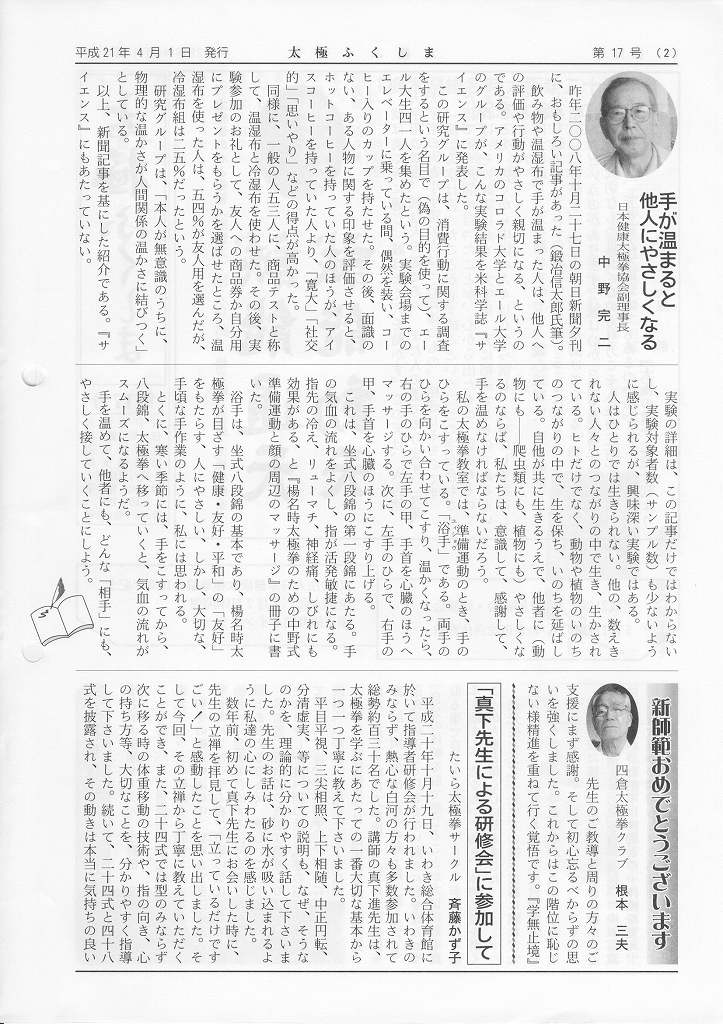 平成21年4月1日　発行　太極ふくしま　第17号（2）
手が温まると
他人にやさしくなる
日本健康太極拳協会副理事長
中野完二
昨年二〇〇八年十月二十七日の朝日新聞夕刊
に、おもしろい記事があった（鍛治信太郎氏筆）。
飲み物や温湿布で手が温まった人は、他人へ
の評価や行動がやさしく親切になる、というの
である。アメリカのコロラド大学とエール大学
のグループが、こんな実験結果を米科学誌『サ
イエンス』に発表した。
この研究グループは、消費行動に関する調査
をするという名目で（偽の目的を使って）、エー
ル大生四一人を集めたという。実験会場までの
エレベーターに乗っている間、偶然を装い、コー
ヒー入りのカップを持たせた。その後、面識の
ない、ある人物に関する印象を評価させると、
ホットコーヒーを持っていた人のほうが、アイ
スコーヒーを持っていた人より、「寛大」「社交
的」「思いやり」などの得点が高かった。
同様に、一般の人五三人に、商品テストと称
して、温湿布と冷湿布を使わせた。その後、実
験参加のお礼として、友人への商品券か自分用
にプレゼントをもらうかを選ばせたところ、温
湿布を使った人は、五四％が友人用を選んだが、
冷湿布組は二五％だったという。
研究グループは、「本人が無意識のうちに、
物理的な温かさが人間関係の温かさに結びつく」
としている。
以上、新聞記事を基にした紹介である。『サ
イエンス』にもあたっていない。
実験の詳細は、この記事だけではわからない
し、実験対象者数（サンプル数）も少ないよう
に感じられるが、興味深い実験ではある。
人はひとりでは生きられない。他の、数えき
れない人々とのつながりの中で生き、生かされ
ている。ヒトだけでなく、動物や植物のいのち
のつながりの中で、生を保ち、いのちを延ばし
ている。自他が共に生きるうえで、他者に（動
物にも――爬虫類にも、植物にも）やさしくな
るのならば、私たちは、意識して、感謝して、
手を温めなければならないだろう。
私の太極拳教室では、準備運動のとき、手の
ひらをこすっている。「浴手」である。両手の
ひらを向かい合わせてこすり、温かくなったら、
右の手のひらで左手の甲、手首を心臓のほうへ
マッサージする。次に、左手のひらで、右手の
甲、手首を心臓のほうにこすり上げる。
これは、坐式八段錦の第一段錦にあたる。手
の気血の流れをよくし、指が活発敏捷になる。
指先の冷え、リューマチ、神経痛、しびれにも
効果がある、と『楊名時太極拳のための中野式
準備運動と顔の周辺のマッサージ』の冊子に書
いた。
浴手は、坐式八段錦の基本であり、楊名時太
極拳が目ざす「健康・友好・平和」の「友好」
をもたらす、人にやさしい、しかし、大切な、
手頃な手作業のように、私には思われる。
とくに、寒い季節には、手をこすってから、
八段錦、太極拳へ移っていくと、気血の流れが
スムーズになるようだ。
手を温めて、他者にも、どんな「相手」にも、
やさしく接していくことにしよう。
新師範おめでとうございます
四倉太極拳クラブ　根本三夫
先生のご教導と周りの方々のご
支援にまず感謝。そして初心忘るべからずの思
いを強くしました。これからはこの階位に恥じ
ない様精進を重ねて行く覚悟です。『学無止境』
「真下先生による研修会」に参加して
たいら太極拳サークル　斉藤かず子
平成二十年十月十九日、いわき総合体育館に
於いて指導者研修会が行われました。いわきの
みならず、熱心な白河の方々も多数参加されて
総勢約百三十名でした。講師の真下進先生は、
太極拳を学ぶにあたっての一番大切な基本から
一つ一つ丁寧に教えて下さいました。
平目平視、三尖相照、上下相随、中正円転、
分清虚実、等についての説明も、なぜ、そうな
のかを、理論的に分かりやすく話して下さいま
した。先生のお話は、砂に水が吸い込まれるよ
うに私達の心にしみわたるのを感じました。
数年前、初めて真下先生にお会いした時に、
先生の立禅を拝見して、「立っているだけです
ごい！」と感動したことを思い出しました。そ
して今回、その立禅から丁寧に教えていただく
ことができ、また、二十四式では型のみならず
次に移る時の体重移動の技術や、指の向き、心
の持ち方等、大切なことを、分かりやすく指導
して下さいました。続いて、二十四式と四十八
式を披露され、その動きは本当に気持ちの良い